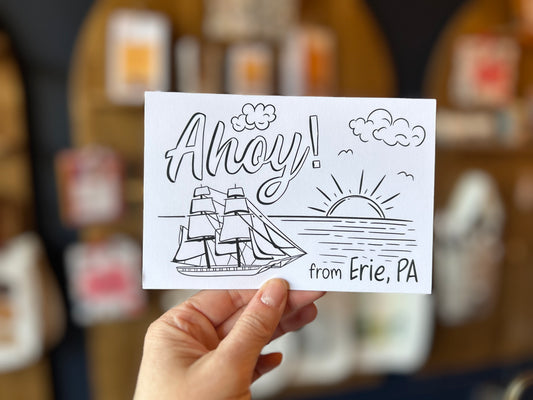 Ahoy!
from Erie, PA